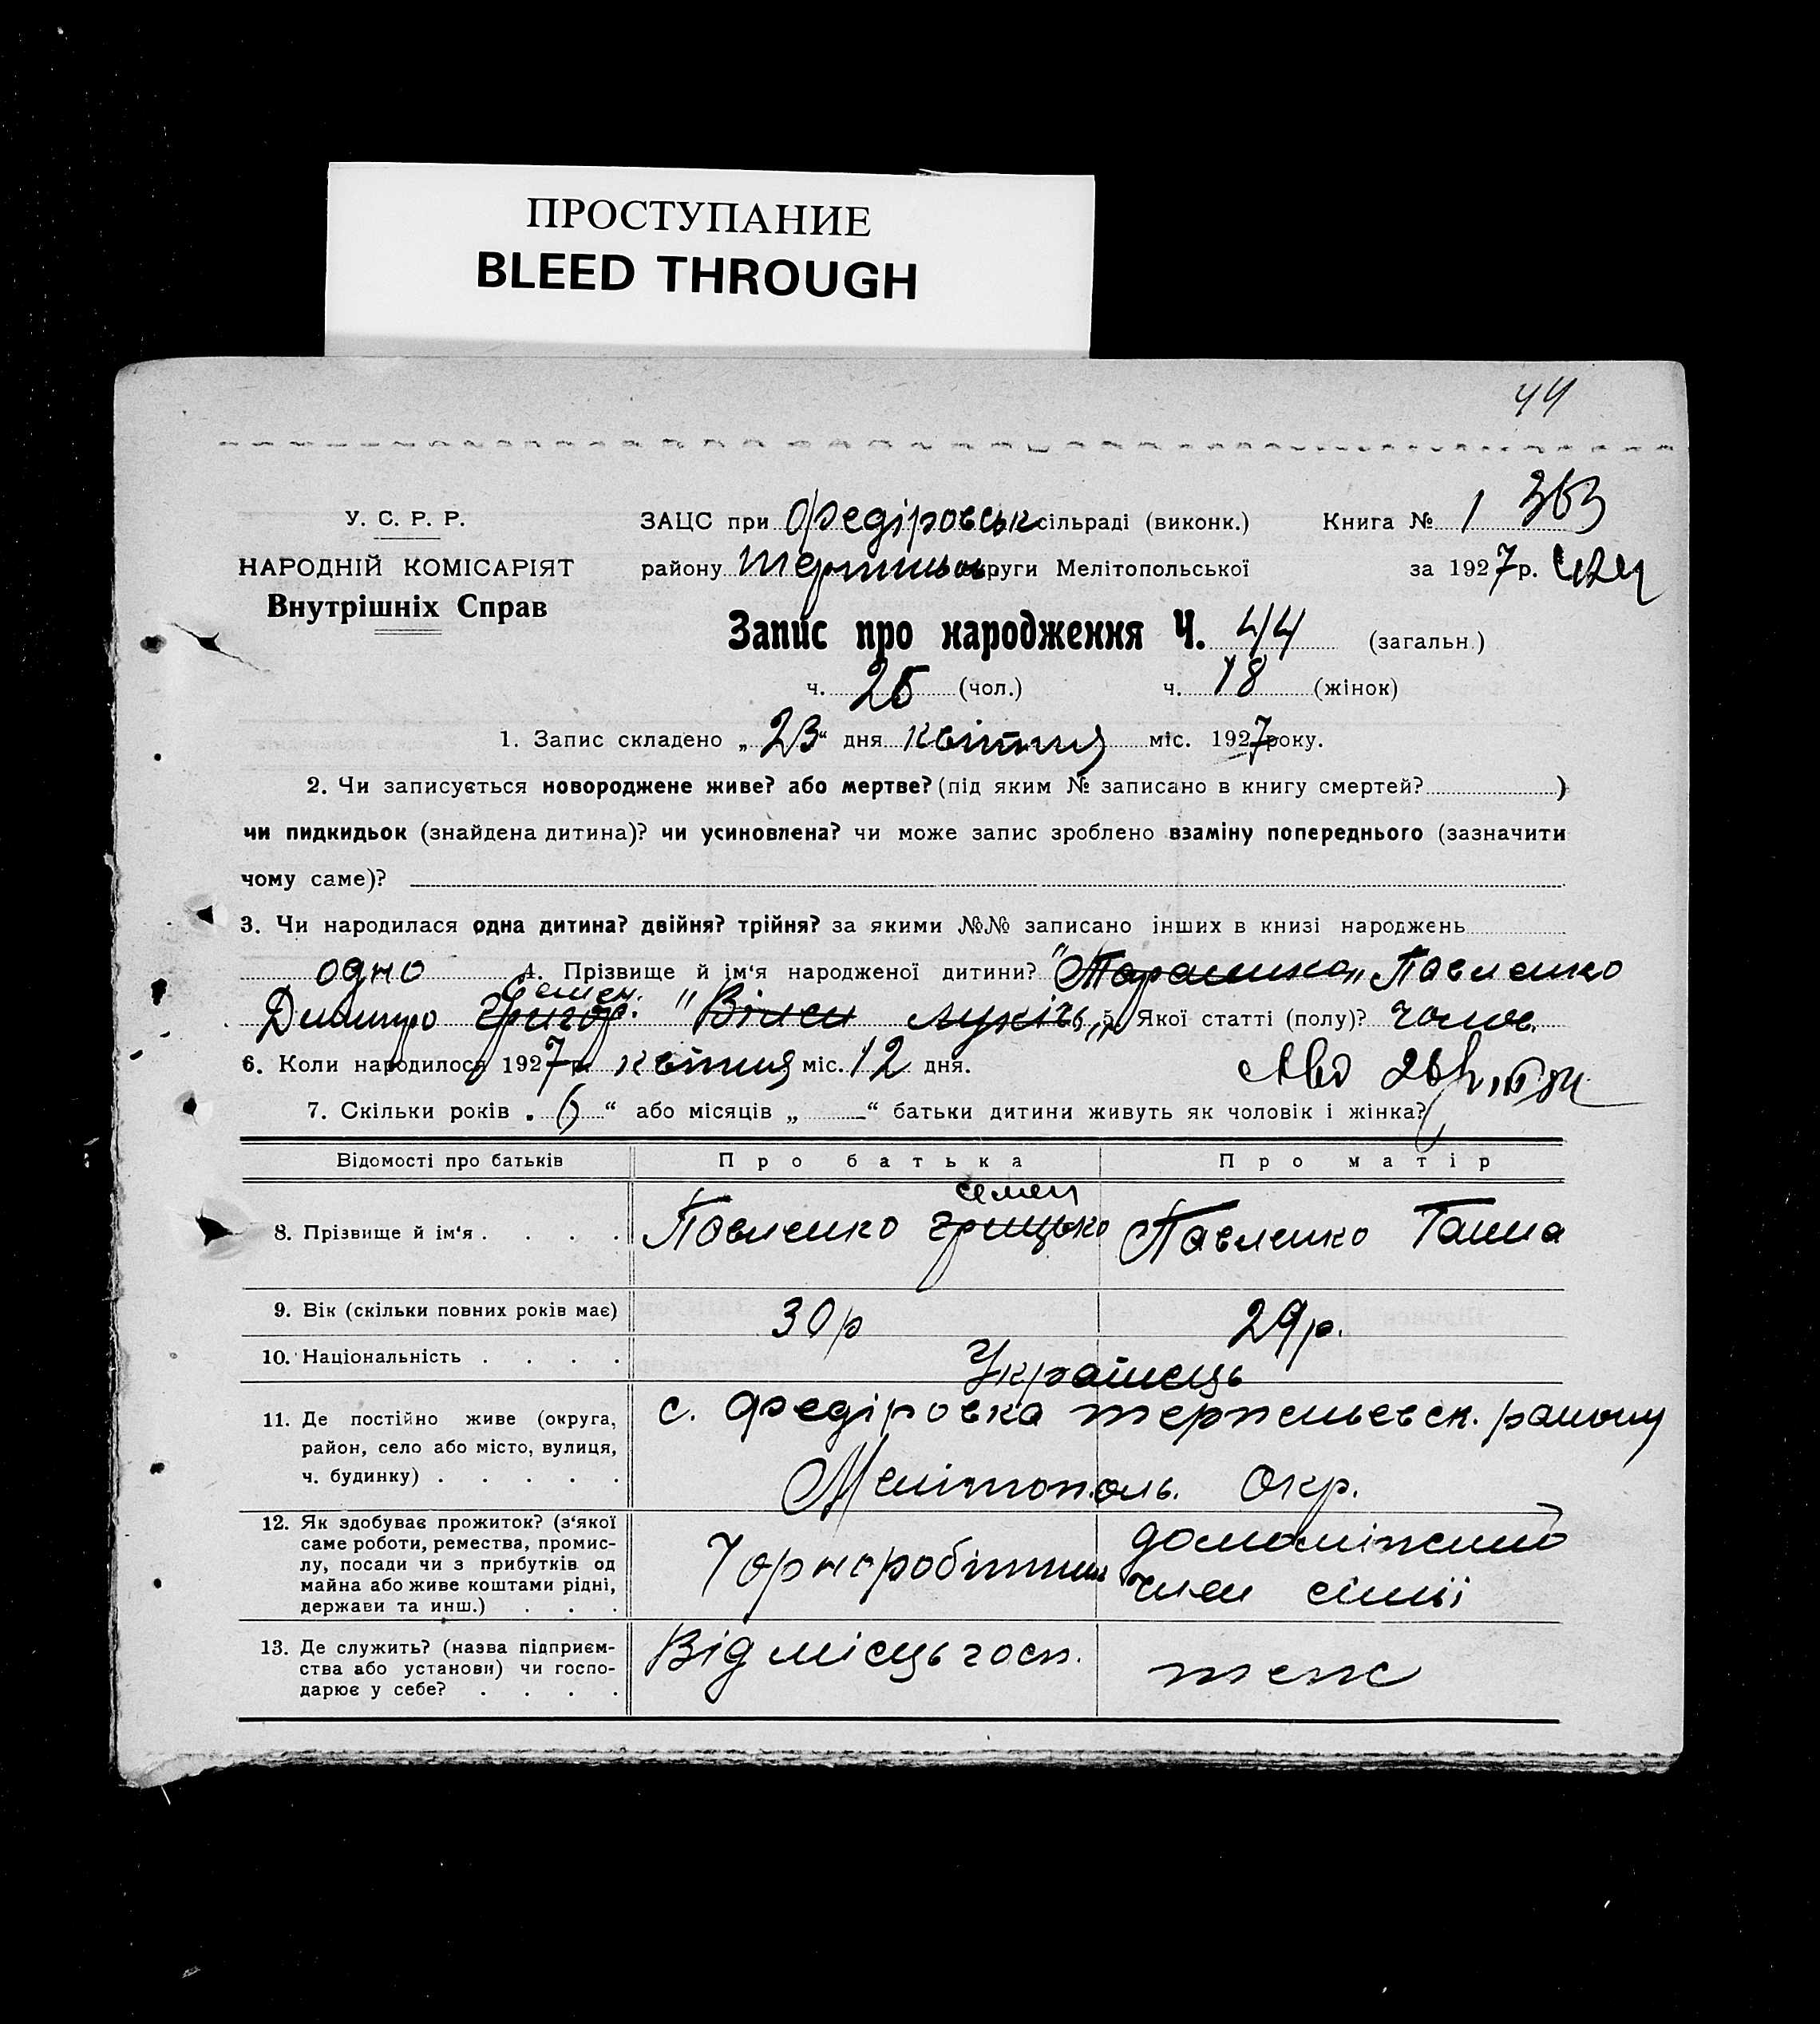 ПРОСТУПАНИЕ
BLEED THROUGH
44
У. С. Р. Р.
НАРОДНІЙ КОМІСАРІЯТ
Внутрішніх Справ
ЗАЦС при Федіровськ сільраді (виконк.) Книга № 1 363
району округи Мелітопольської за 1927 р.
Запис про народження Ч. 44 (загальн.)
ч. 26 (чол.) ч. 18 (жінок)
1. Запис складено „ 23 “ дня квітня міс. 1927 року.
2. Чи записується новороджене живе? або мертве? (під яким № записано в книгу смертей? )
чи пидкидьок (знайдена дитина)? чи усиновлена? чи може запис зроблено взаміну попереднього (зазначити
чому саме)?
3. Чи народилася одна дитина? двійня? трійня? за якими №№ записано інших в книзі народжень
одно 4. Прізвище й ім‘я народженої дитини? Павленко
Семен.
Дмитро Григор. 5. Якої статті (полу)? чолов.
6. Коли народилося 1927 р. квітня міс. 12 дня.
7. Скільки років „ 6 “ або місяців „ “ батьки дитини живуть як чоловік і жінка?
Відомості про батьків Про батька Про матір
Семен
8. Прізвище й ім‘я . . . . Павленко Грицько Павленко Ганна
9. Вік (скільки повних років має) 30 р 29 р.
10. Національність . . . . Українець
11. Де постійно живе (округа, район, село або місто, вулиця, ч. будинку) . . . . . с. Федіровка терпеньевск. району
Мелітополь. Окр.
12. Як здобуває прожиток? (з‘якої саме роботи, ремества, промислу, посади чи з прибутків од майна або живе коштами рідні, держави та инш.) . . . Чорноробітник
член сімьї
13. Де служить? (назва підприємства або установи) чи господарює у себе? . . . . Від місць госп. теж